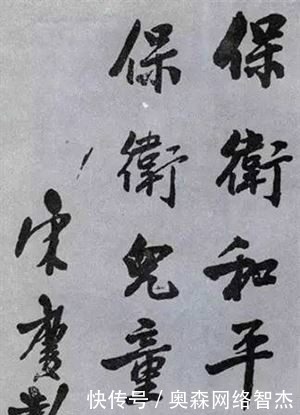 保衛和平
保衛兒童
宋慶
快传号/奥森网络智杰